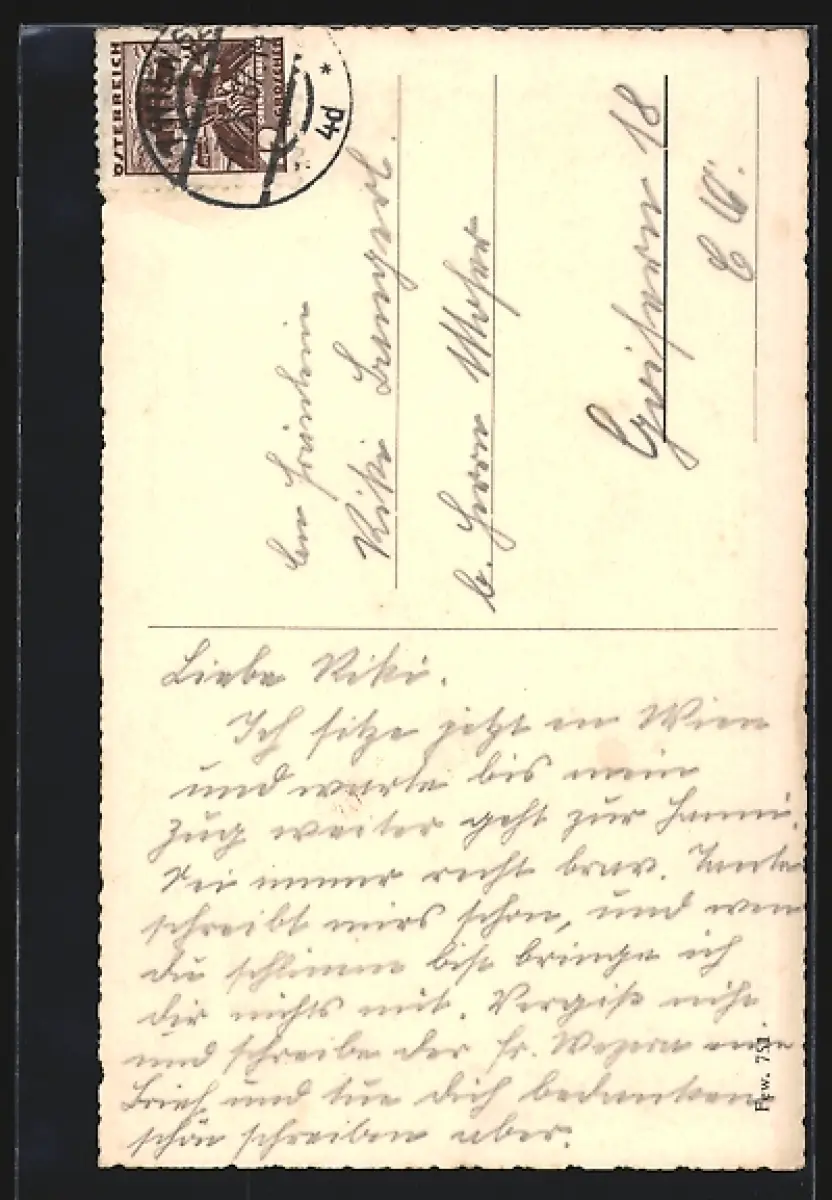 ÖSTERREICH
GROSCHEN
4d *
An Fräulein
Riki
b. Herrn Moser
Goisern 18
Liebe Riki.
Ich sitze jetzt in Wien
und warte bis mein
Zug weiter geht zur Hanni.
Sei immer recht brav. Tante
schreibt mirs schon, und wen
du schlimm bist bringe ich
dir nichts mit. Vergiß nicht
und schreibe der Fr. eine
Brief und tue dich bedanken
schön schreiben aber.
Pew. 751